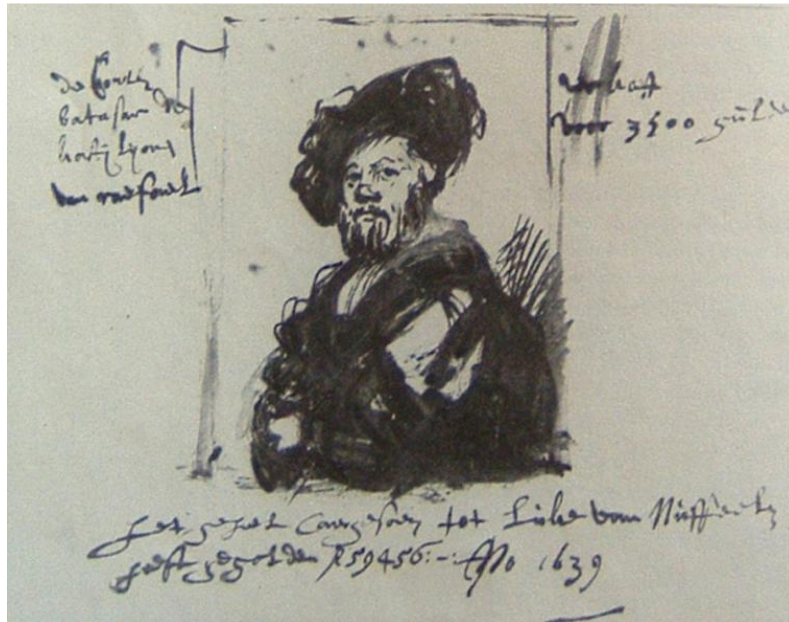 de Conte
batasar de
kastylyone
van raefael
verkoft
voor 3500 gulde
het geheel Caergesoen tot Luke van Nuffeelen
heeft gegolden f 59456:- Ao 1639